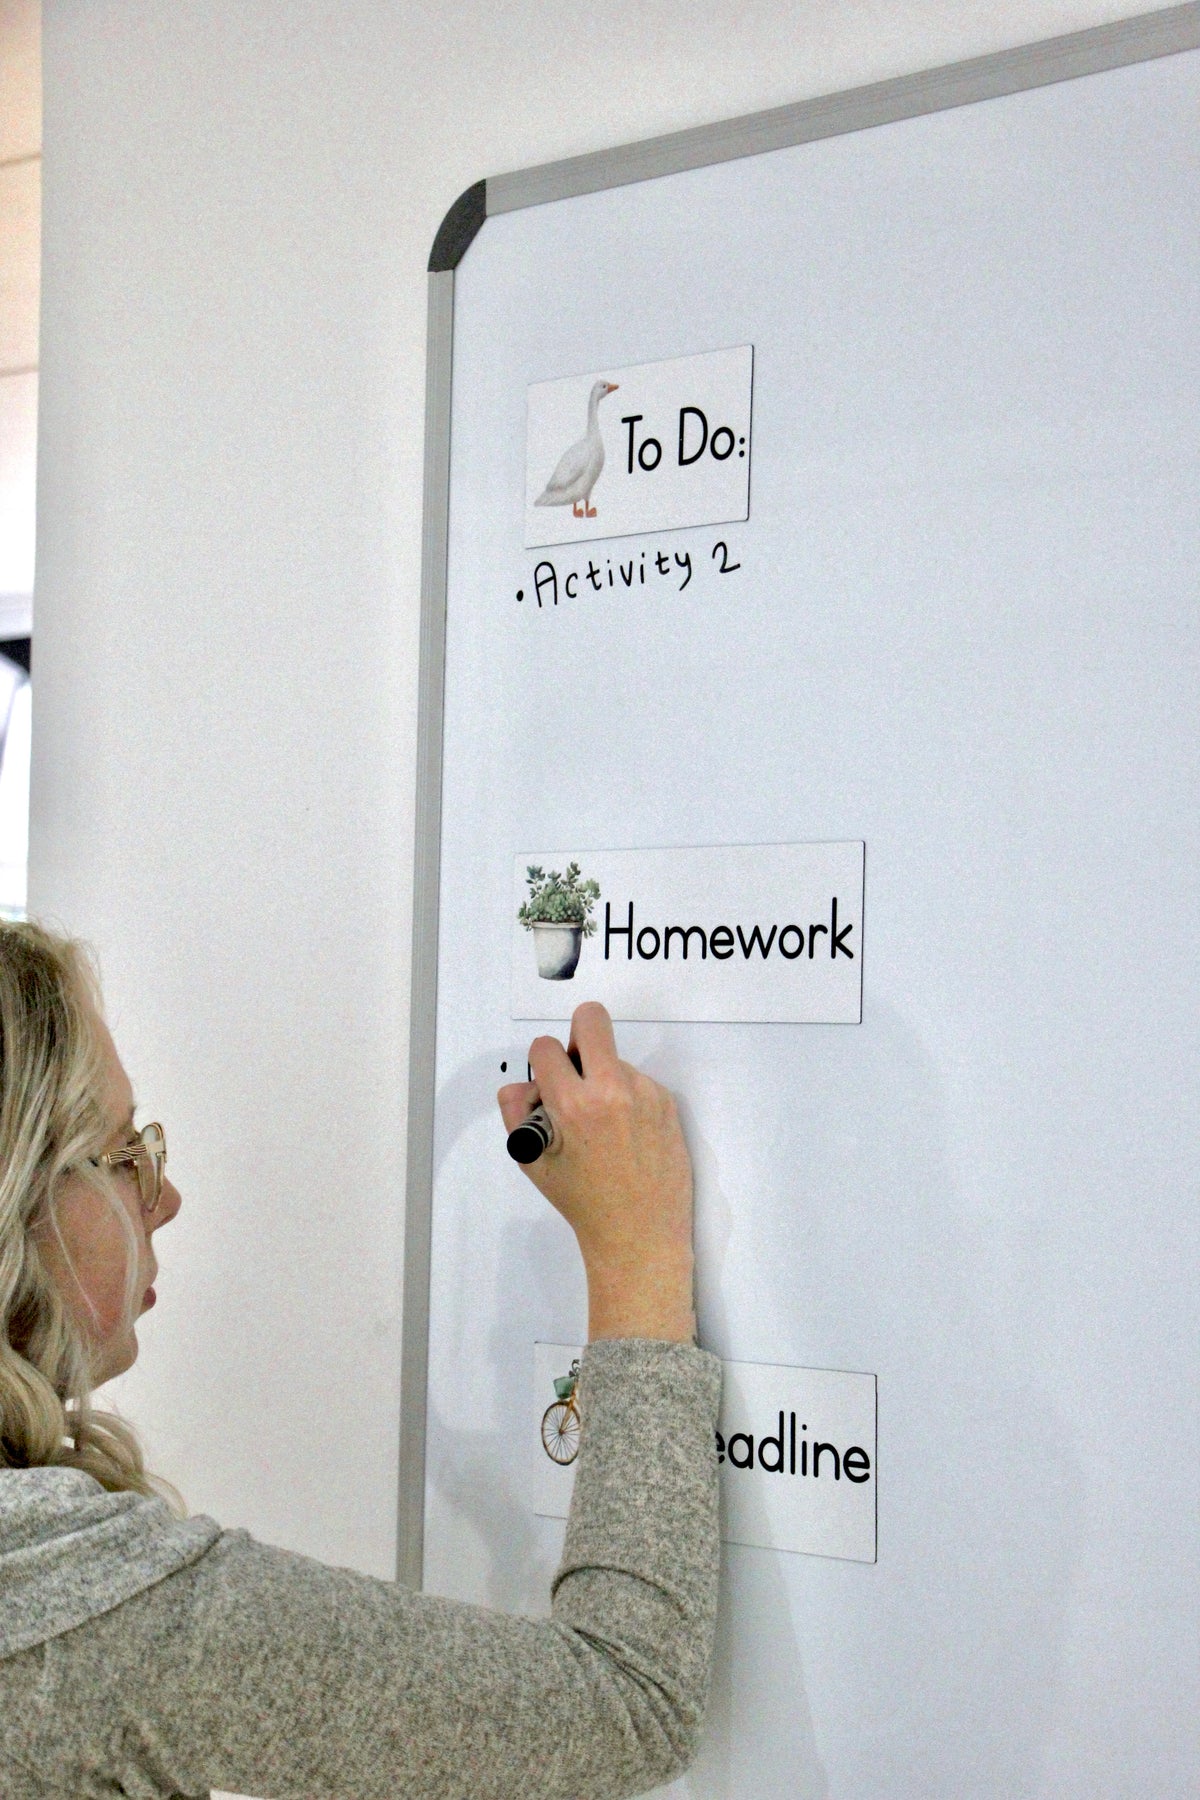 To Do:
• Activity 2
Homework
•
eadline